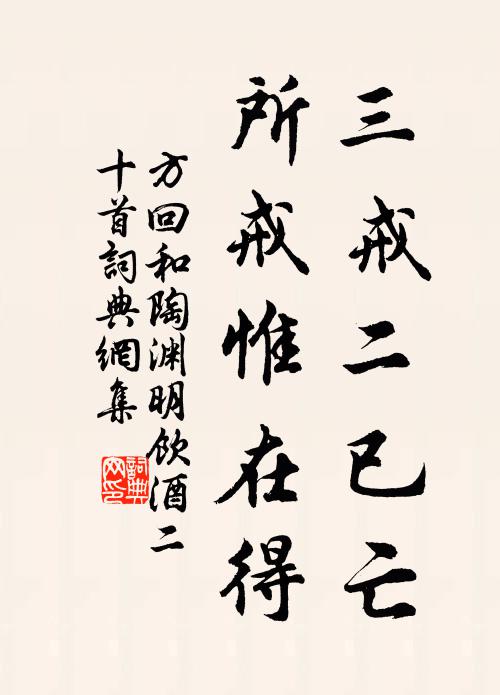 三戒二已亡
所戒惟在得
方回和陶渊明饮酒二
十首詞典網集
詞典
网印